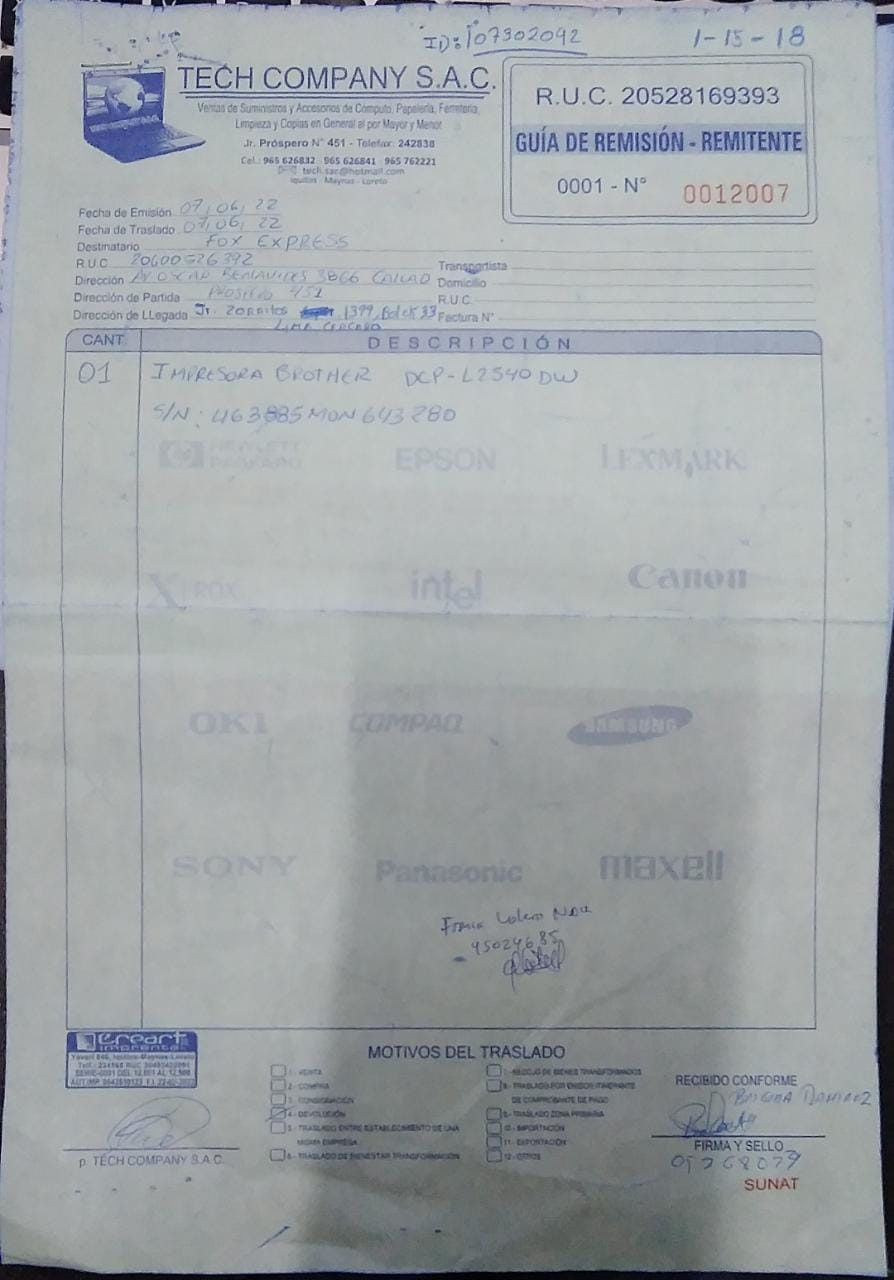 ID: 107302092
1-15-18
TECH COMPANY S.A.C.
Ventas de Suministros y Accesorios de Cómputo, Papelería, Ferretería,
Limpieza y Copias en General al por Mayor y Menor
Jr. Próspero N° 451 - Telefax: 242838
Cel.: 965 626832 965 626841 965 762221
tech.sac@hotmail.com
Iquitos - Maynas - Loreto
R.U.C. 20528169393
GUÍA DE REMISIÓN - REMITENTE
0001 - N° 0012007
Fecha de Emisión 07, 06, 22
Fecha de Traslado 07, 06, 22
Destinatario FOX EXPRESS
R.U.C. 20600526392
Dirección AV OSCAR BENAVIDES 3866 CALLAO
Dirección de Partida PROSPERO 451
Dirección de LLegada Jr. ZORRITOS 1399, Block 33
LIMA CERCADO
Transportista
Domicilio
R.U.C.
Factura N°
CANT.
DESCRIPCIÓN
01 IMPRESORA BROTHER DCP-L2540DW
S/N: U63885M0N643280
HEWLETT PACKARD
EPSON
LEXMARK
XEROX
intel
Canon
OKI
COMPAQ
SAMSUNG
SONY
Panasonic
maxell
45024685
Creart
imprenta
MOTIVOS DEL TRASLADO
1 - VENTA
2 - COMPRA
3 - CONSIGNACIÓN
4 - DEVOLUCIÓN
5 - TRASLADO ENTRE ESTABLECIMIENTO DE UNA
MISMA EMPRESA
6 - TRASLADO DE BIENES TRANSFORMACIÓN
7 - RECOJO DE BIENES TRANSFORMADOS
8 - TRASLADO POR EMISOR ITINERANTE
DE COMPROBANTE DE PAGO
9 - TRASLADO ZONA PRIMARIA
10 - IMPORTACIÓN
11 - EXPORTACIÓN
12 - OTROS
RECIBIDO CONFORME
BRIGIDA RAMIREZ
p. TECH COMPANY S.A.C.
FIRMA Y SELLO
05268079
SUNAT